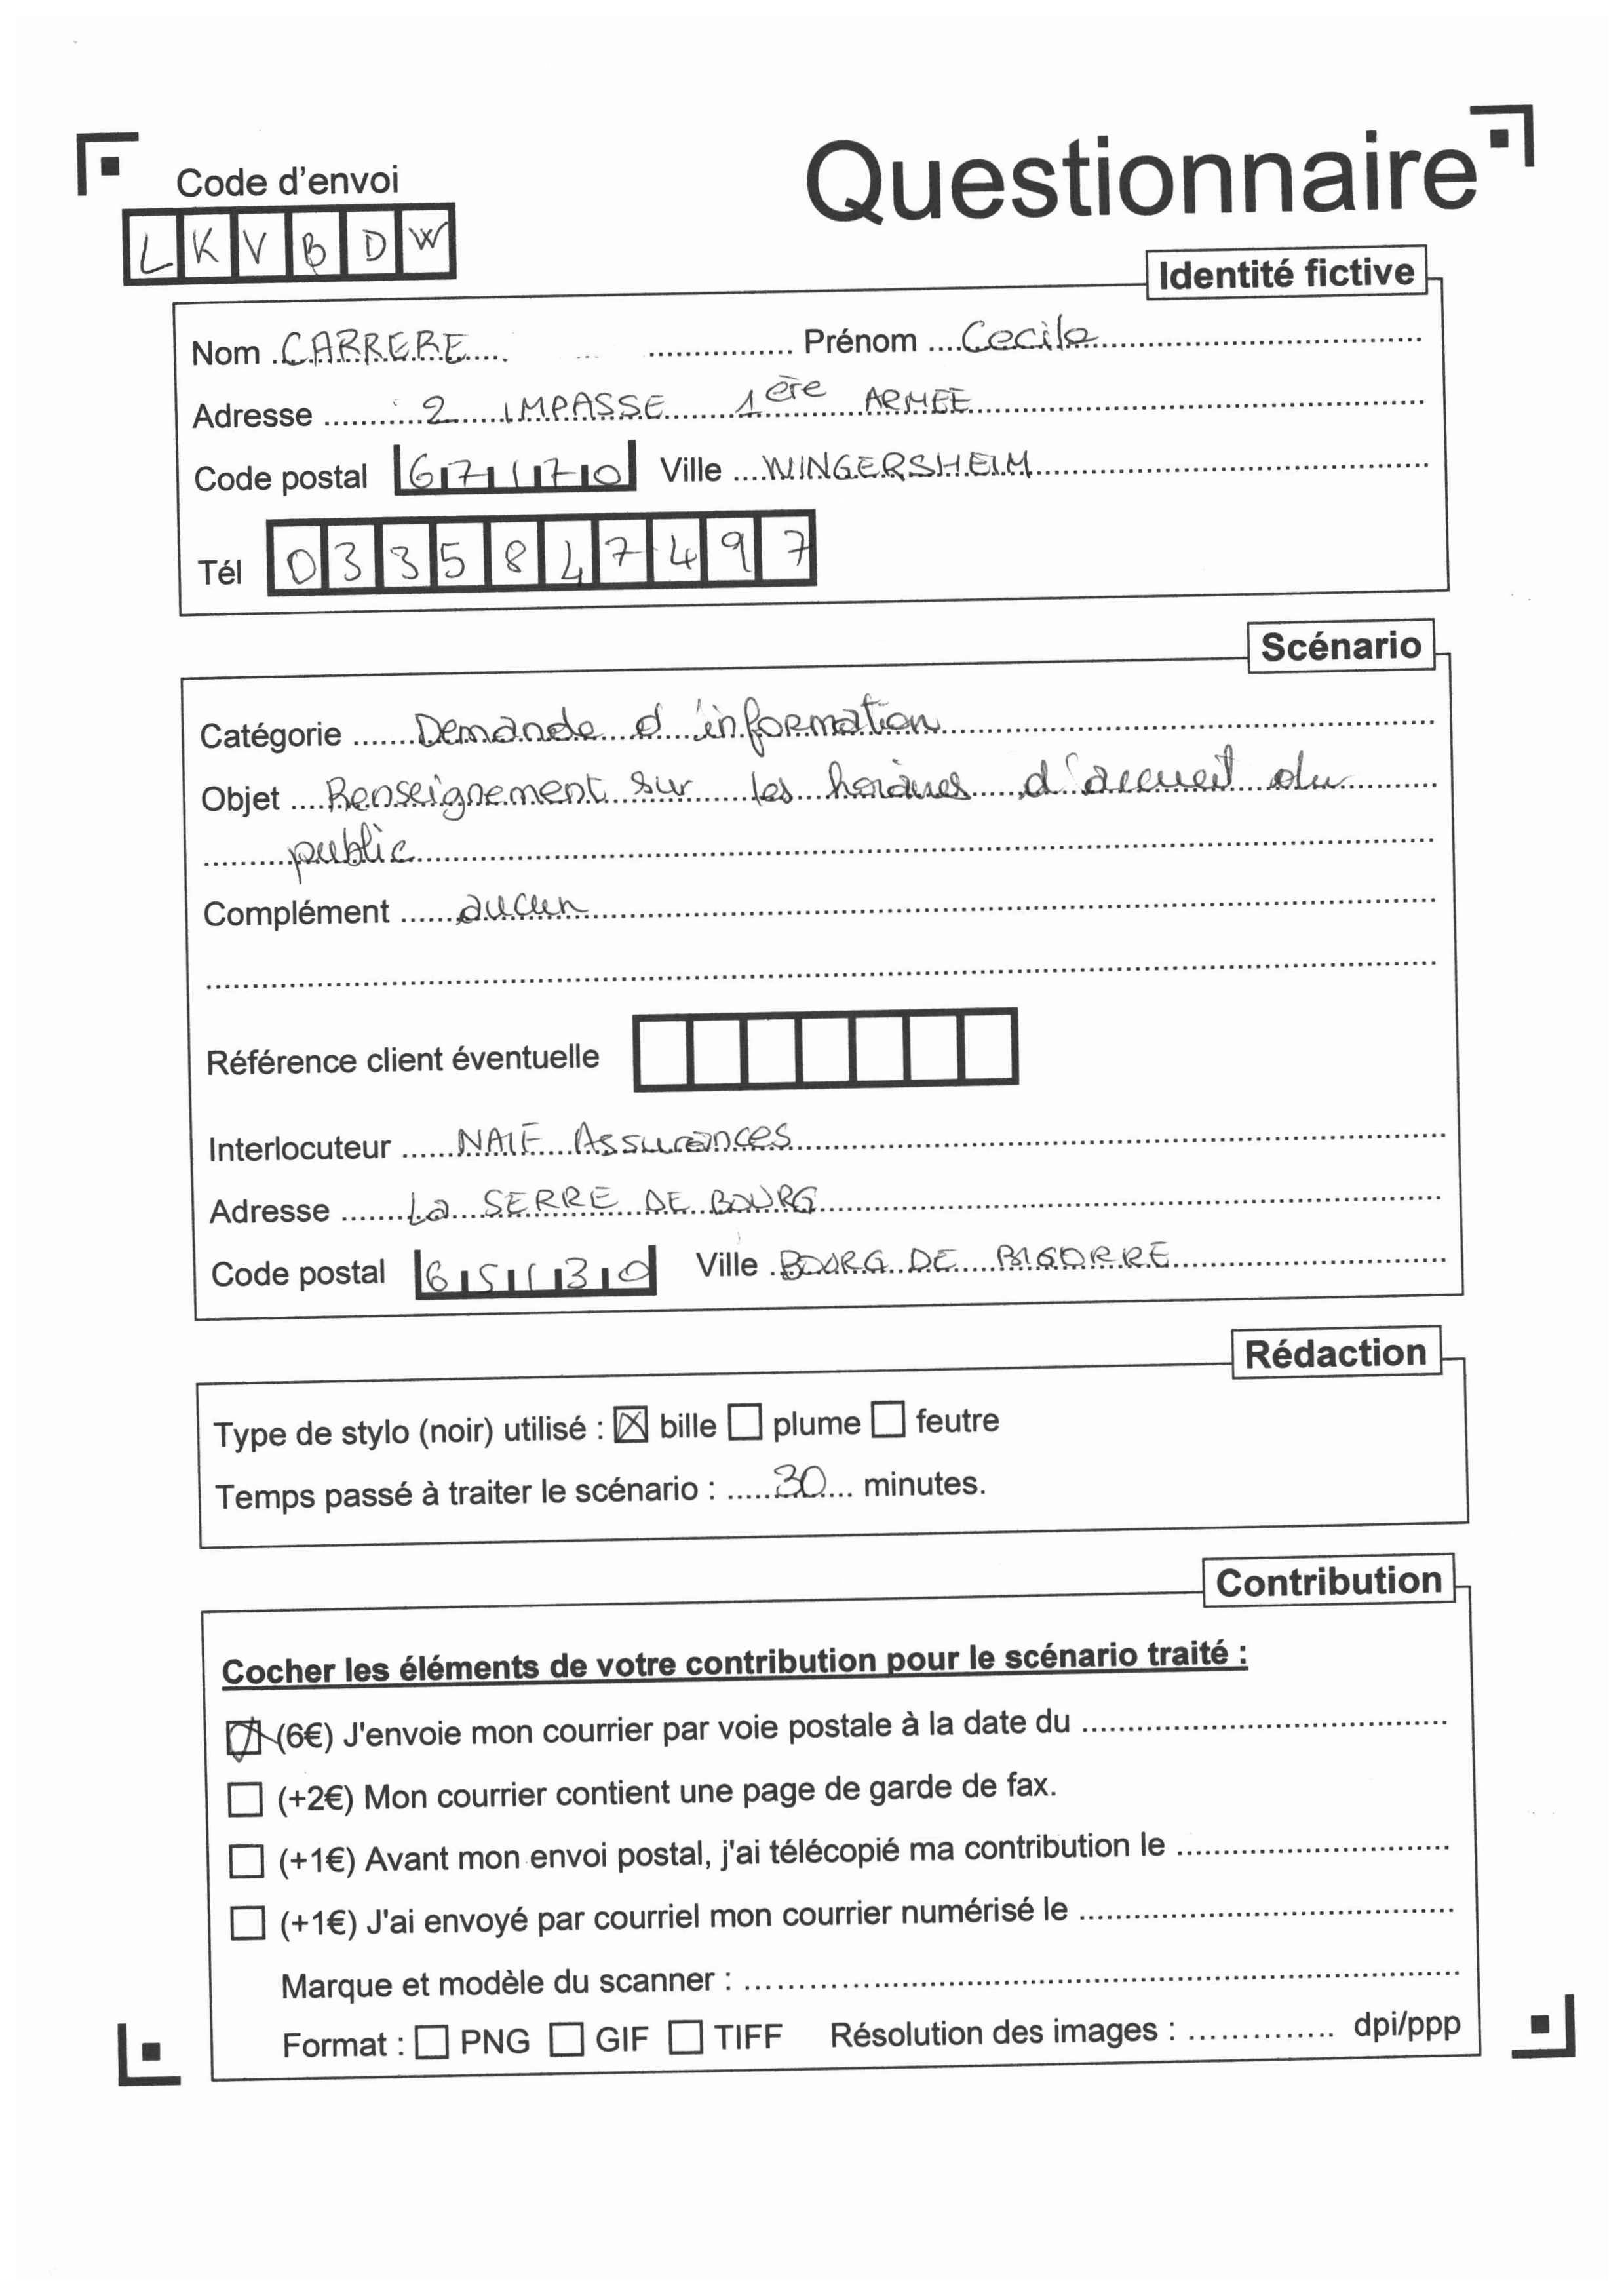 Questionnaire
Code d'envoi
LKVBDW
Identité fictive
Nom CARRERE Prénom Cecile
Adresse 2 IMPASSE 1ère ARMEE
Code postal 67170 Ville WINGERSHEIM
Tél 0335847497
Scénario
Catégorie Demande d'information
Objet Renseignement sur les horaires d'accueil du
public
Complément aucun
Référence client éventuelle
Interlocuteur NAIE Assurances
Adresse La SERRE DE BOURG
Code postal 65130 Ville BOURG DE BIGORRE
Rédaction
Type de stylo (noir) utilisé : ☒ bille ☐ plume ☐ feutre
Temps passé à traiter le scénario : 30 minutes.
Contribution
Cocher les éléments de votre contribution pour le scénario traité :
☒ (6€) J'envoie mon courrier par voie postale à la date du
☐ (+2€) Mon courrier contient une page de garde de fax.
☐ (+1€) Avant mon envoi postal, j'ai télécopié ma contribution le
☐ (+1€) J'ai envoyé par courriel mon courrier numérisé le
Marque et modèle du scanner :
Format : ☐ PNG ☐ GIF ☐ TIFF Résolution des images : dpi/ppp